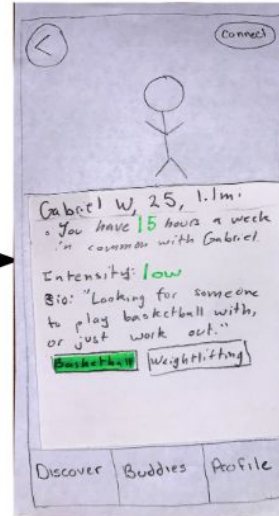 <
Connect
Gabriel W, 25, 1.1m.
• You have 15 hours a week
in common with Gabriel.
Intensity: low
Bio: "Looking for someone
to play basketball with,
or just work out."
Basketball Weightlifting
Discover Buddies Profile